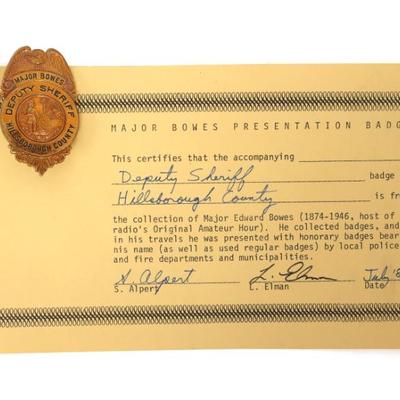 MAJOR BOWES
DEPUTY SHERIFF
HILLSBOROUGH COUNTY
MAJOR BOWES PRESENTATION BADG
This certifies that the accompanying
Deputy Sheriff badge
Hillsborough County is fr
the collection of Major Edward Bowes (1874-1946, host of
radio's Original Amateur Hour). He collected badges, and
in his travels he was presented with honorary badges bear
his name (as well as used regular badges) by local police
and fire departments and municipalities.
S. Alpert L. Elman July '8
S. Alpert L. Elman Date